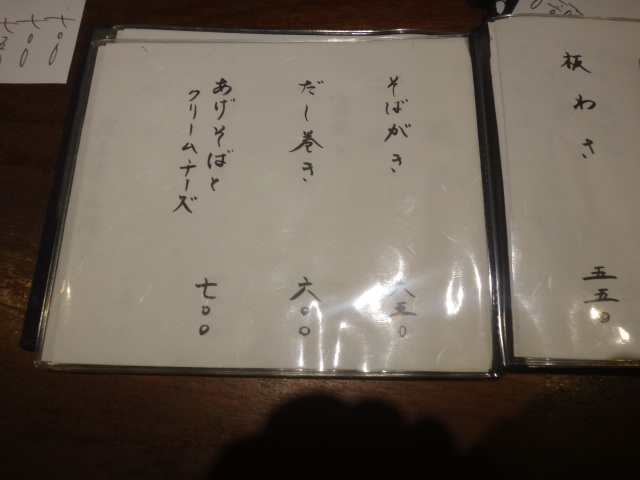 板わさ
五五〇
そばがき
八五〇
だし巻き
六〇〇
あげそばと
クリームチーズ
七〇〇
七〇〇